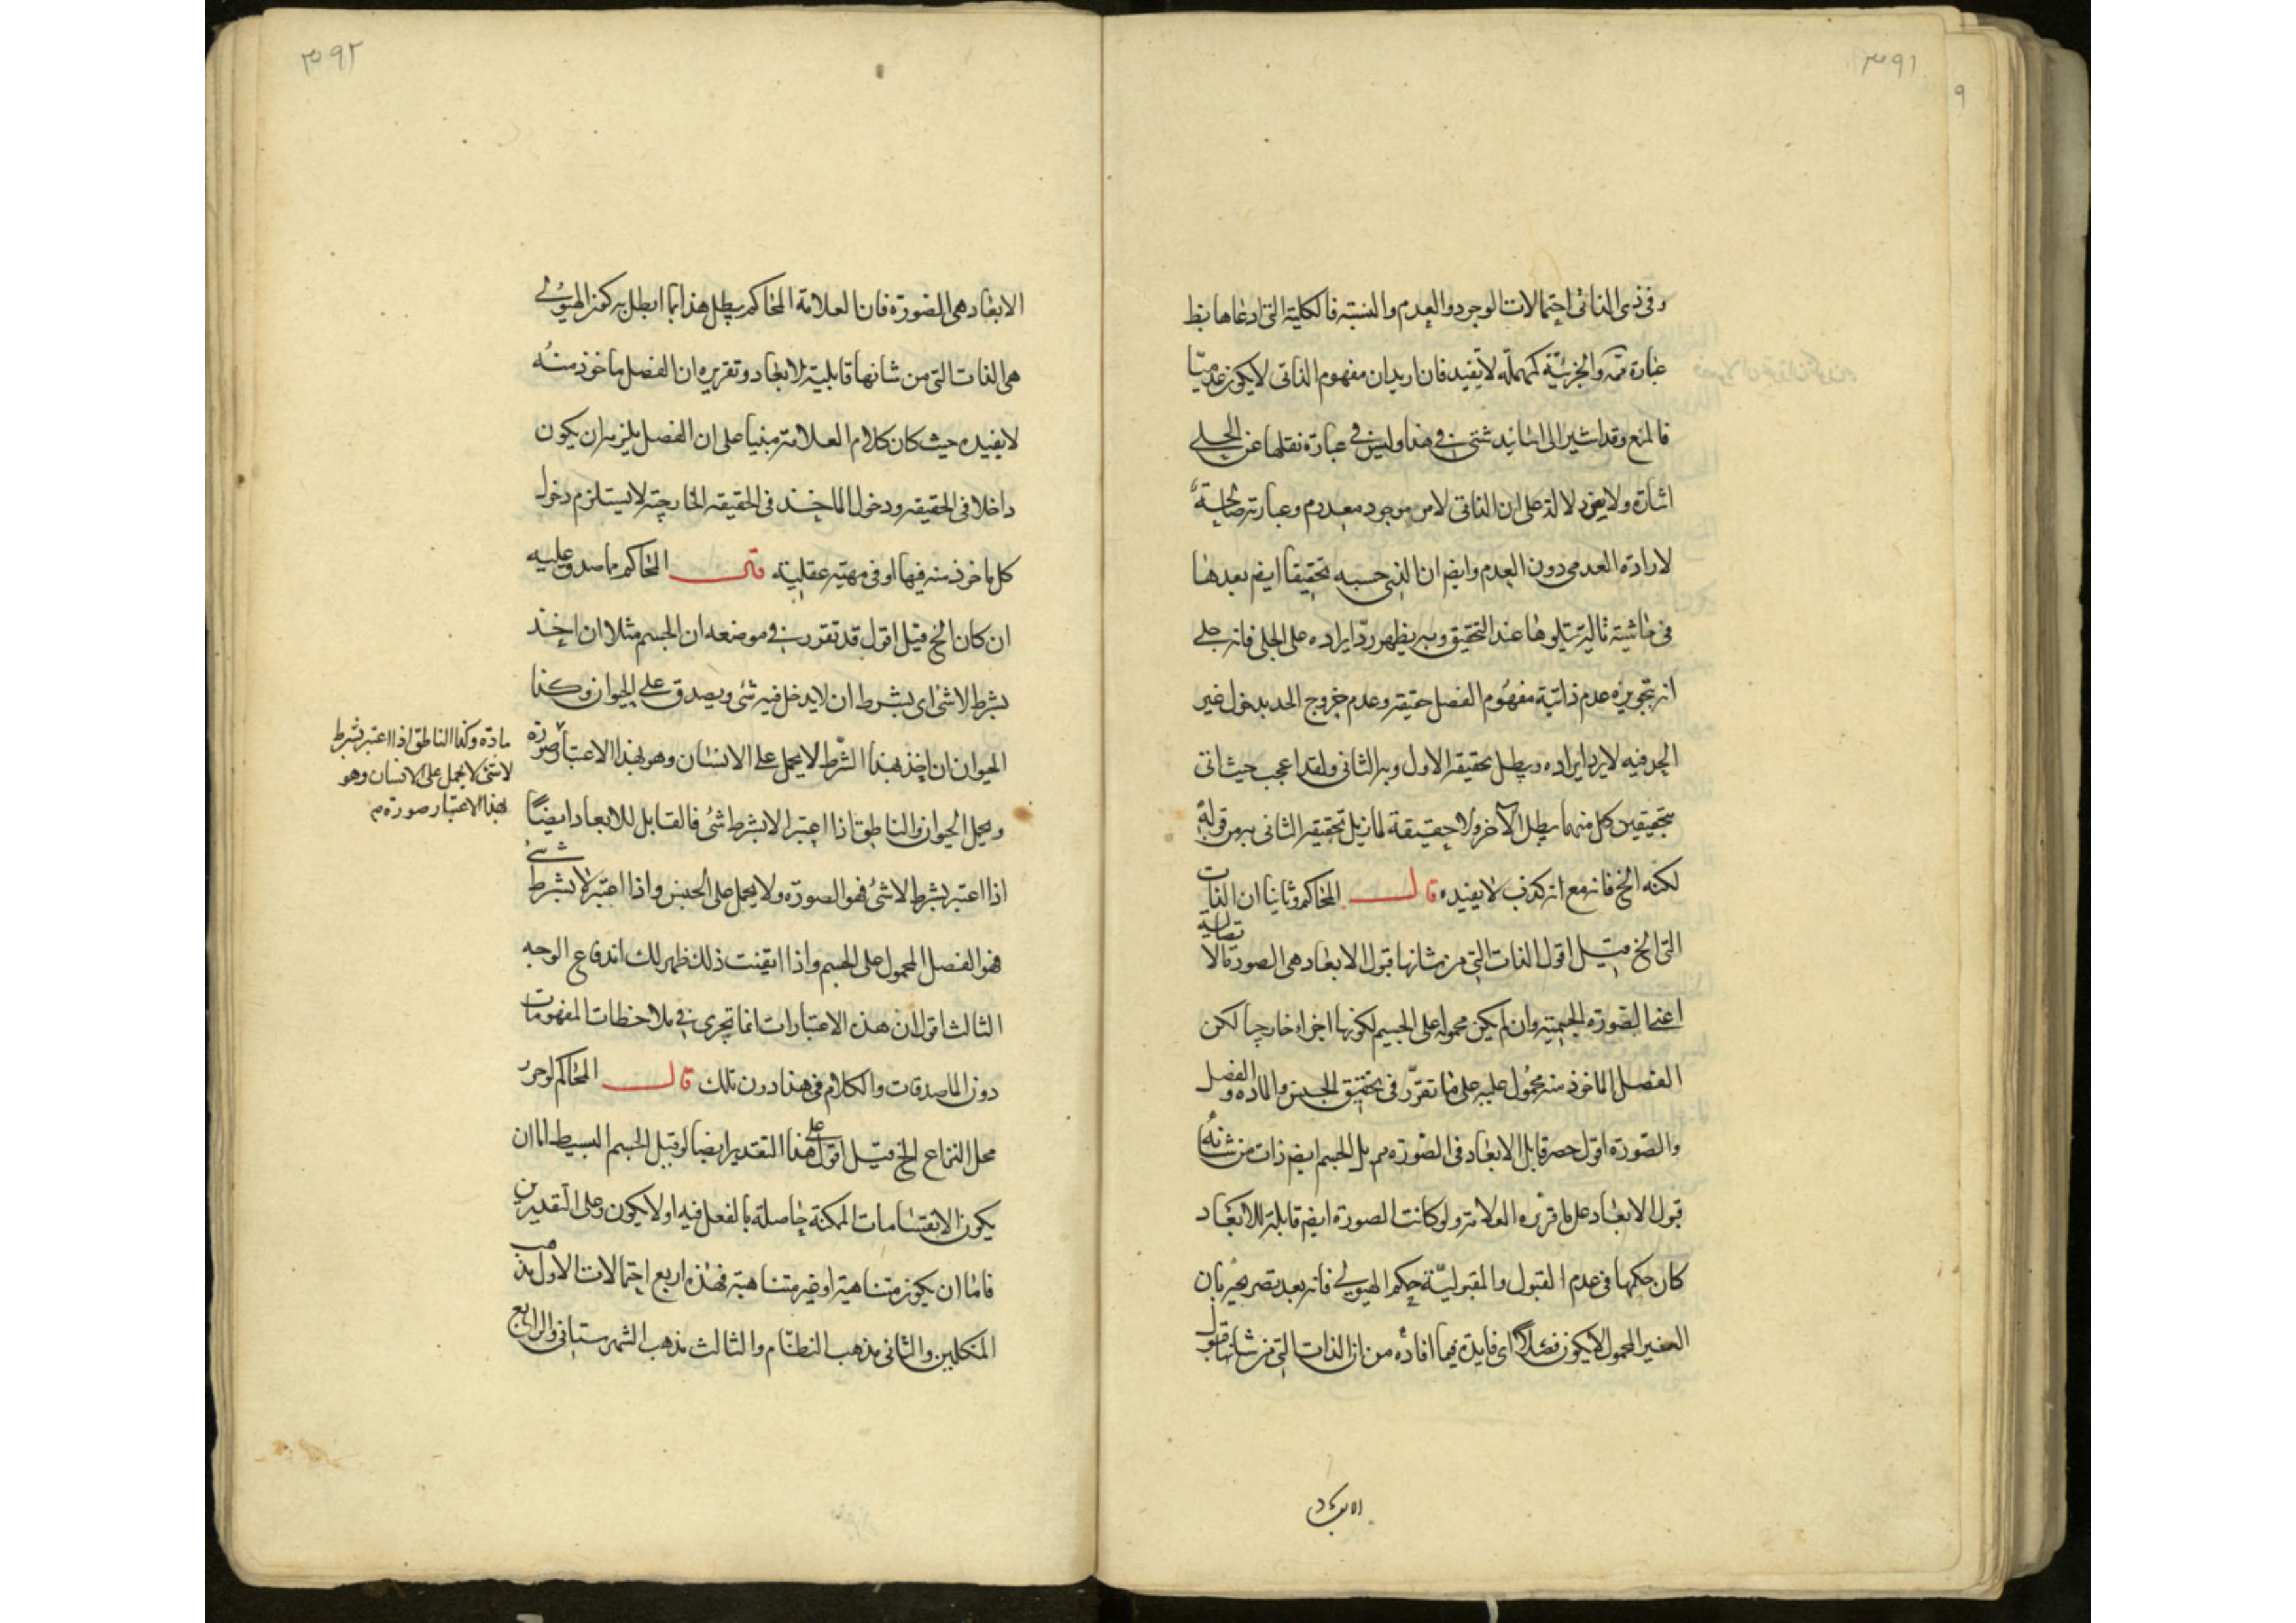 ٣٩١
٩
وفی ذی الذاتی احتمالات الوجود والعدم والنسبة فالكلية التی ادعاها بظ
عبارة تمه والجزئیة كمهملة لا تفید فان ارید ان مفهوم الذاتی لا یكون عدمیا
فالمنع وقد اشیر الی اسانید شتی فی هذا ولیس فی عبارة نقلها عن الجلی
اشارة ولا یعود لالة علی ان الذاتی لامر موجود معدوم وعبارته صالحة
لارادة العدمی دون العدم وایضم ان الذی حسبه تحقیقا ایضم بعدها
فی حاشیة تالیة تتلوها عند التحقیق وبه یظهر رد ایراده علی الجلی فانه علی
انه بتجویزه عدم ذاتیة مفهوم الفصل حقیقة وعدم خروج الحد بدخول غیر
الحد فیه لا یرد ایراده ویبطل تحقیقه الاول وبه الثانی ولقد اعجب حیث اتی
بتحقیقین كل منهما یبطل الآخر ولا حقیقة لما زیل تحقیقه الثانی به من قوله
لكنه الخ فانه مع انه كذب لا یفیده قال المحاكم وثانیا ان الذات
التی الخ قیل اقول الذات التی من شانها قبول الابعاد هی الصورة الا تصالیة
اعنی الصورة الجسمیة وان لم یكن محمولة علی الجسم لكونها اجزاء خارجیا لكن
الفصل الماخوذ منه محمول علیه علی ما تقرر فی تحقیق الجنس والمادة والفصل
والصورة اقول حصر قابل الابعاد فی الصورة مم بل الجسم ایضم ذات من شانه
قبول الابعاد علی ما قرره العلامة ولو كانت الصورة ایضم قابلة للابعاد
كان حكمها فی عدم القبول والمقبولیة حكم الهیولی فانه بعد تصریحه بان
الغیر المحمول لا یكون فصلا ای فایدة فیما افاده من ان الذات التی من شانها قبول
الابعاد
٣٩٢
الابعاد هی الصورة فان العلامة المحاكم یبطل هذا بما ابطل به كون الهیولی
هی الذات التی من شانها قابلیة الابعاد وتقریره ان الفصل ماخوذ منه
لا یفیده حیث كان كلام العلامة مبنیا علی ان الفصل یلزم ان یكون
داخلا فی الحقیقة ودخول الماخذ فی الحقیقة الخارجیة لا یستلزم دخول
كل ماخوذ منه فیها او فی مهیة عقلیة قال المحاكم ما صدق علیه
ان كان الخ قیل اقول قد تقرر فی موضعه ان الجسم مثلا ان اخذ
بشرط لا شئ ای بشرط ان لا یدخل فیه شئ ویصدق علی الحیوان وكذا
الحیوان ان اخذ بهذا الشرط لا یحمل علی الانسان وهو بهذا الاعتبار صورة
مادة وكذا الناطق اذا اعتبر بشرط
لا شئ لا یحمل علی الانسان وهو
بهذا الاعتبار صورة م
ویحمل الحیوان والناطق اذا اعتبر الا بشرط شئ فالقابل للابعاد ایضا
اذا اعتبر بشرط لا شئ فهو الصورة ولا یحمل علی الجنس واذا اعتبر لا بشرط شئ
فهو الفصل المحمول علی الجسم واذا اتقنت ذلك ظهر لك اندفاع الوجه
الثالث اقول ان هذه الاعتبارات انما تجری فی ملاحظات المفهومات
دون الماصدقات والكلام فی هذا دون تلك قال المحاكم لوحرر
محل النزاع الخ قیل اقول علی هذا التقدیر ایضا لو قبل الجسم البسیط اما ان
یكون الانقسامات الممكنة حاصلة بالفعل فیه او لا یكون وعلی التقدیرین
فاما ان یكون متناهیة او غیر متناهیة فهذه اربع احتمالات الاول مذهب
المتكلمین والثانی مذهب النظام والثالث مذهب الشهرستانی والرابع